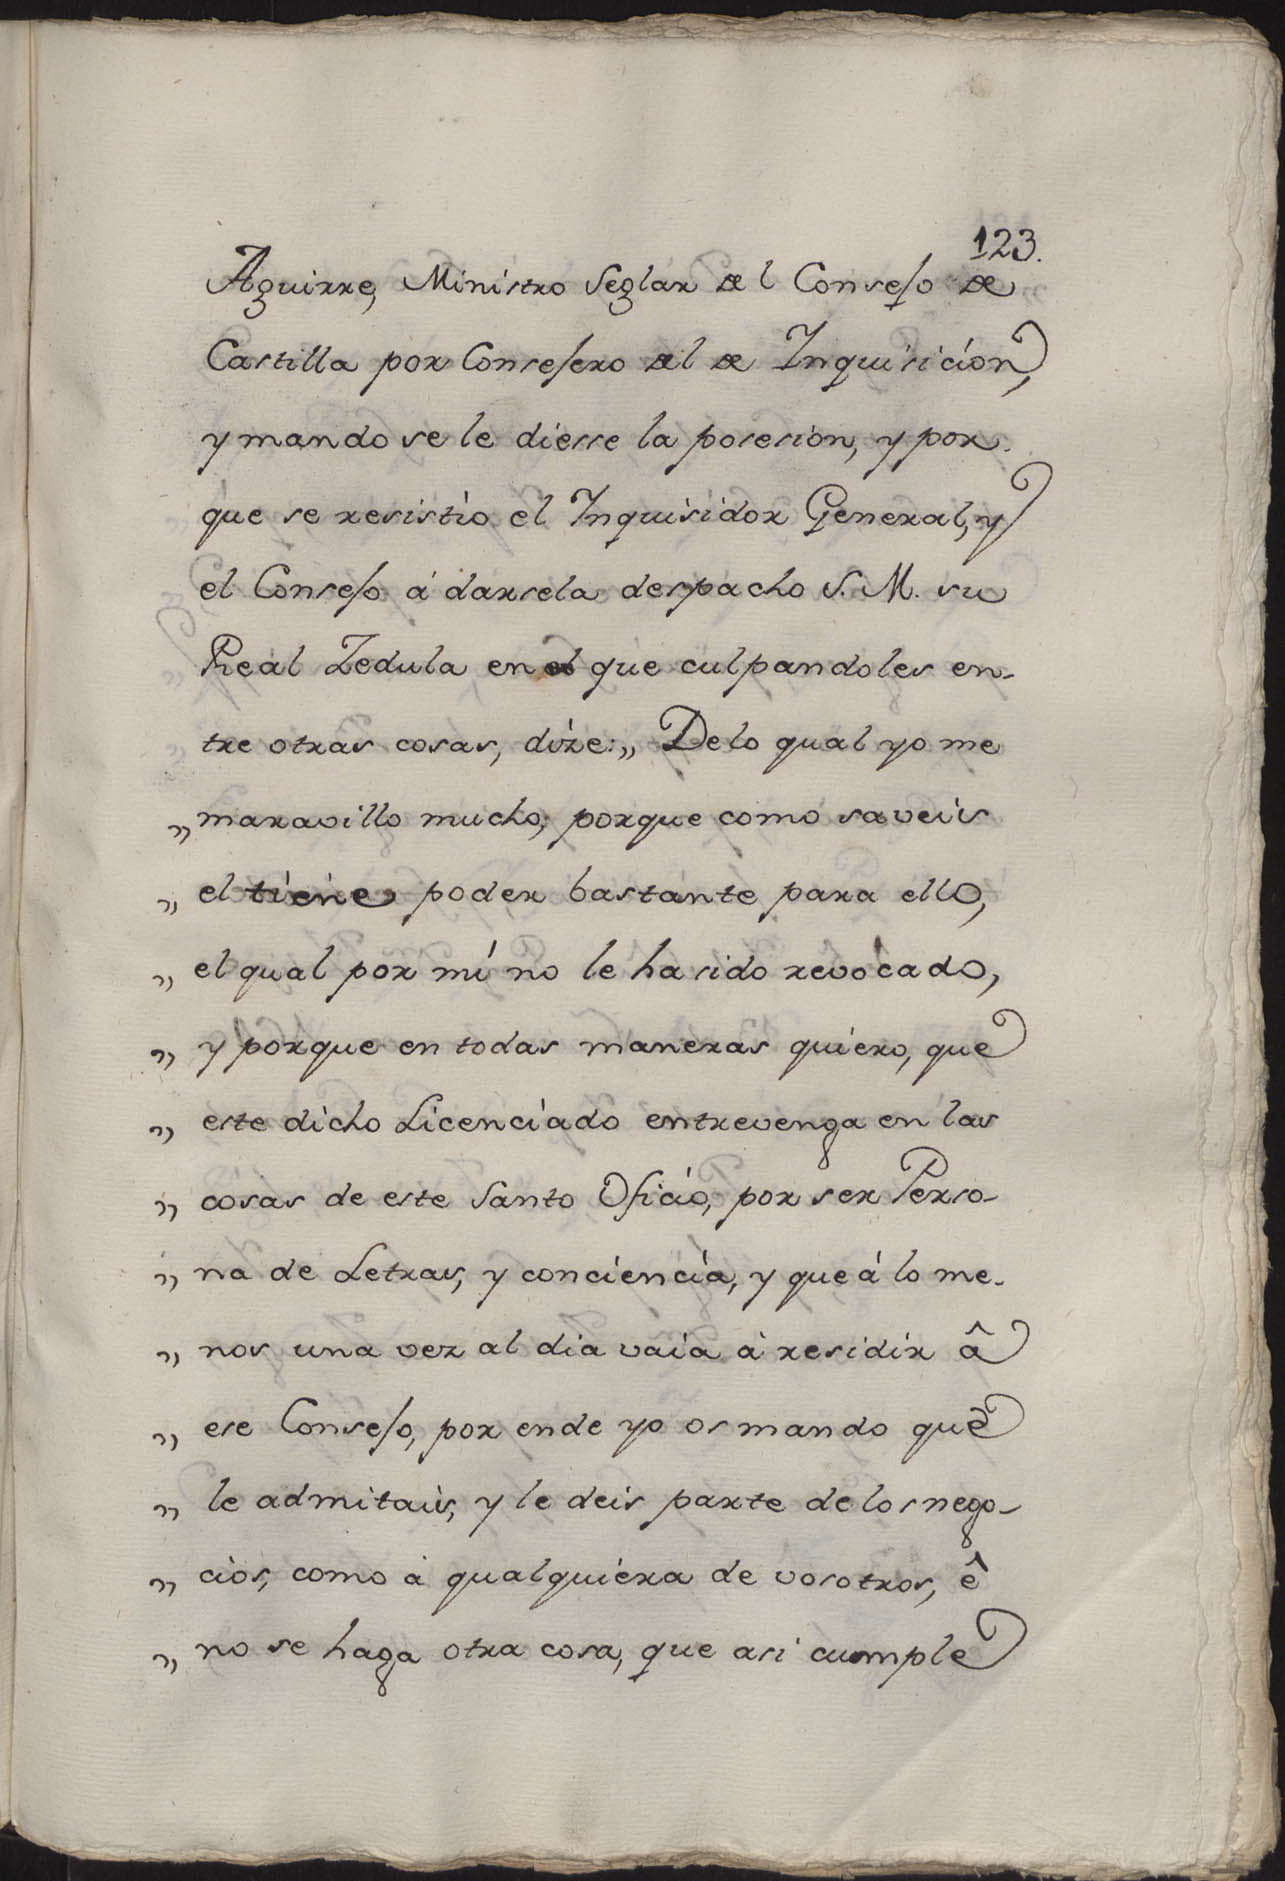 123.
Aguirre, Ministro Seglar del Consejo de
Castilla por Consejero del de Inquisicion,
y mando se le diesse la posesion, y por
que se resistiò el Inquisidor General, y
el Consejo á darsela despacho S. M. su
Real Zedula en el que culpandoles en-
tre otras cosas, dize: „ De lo qual yo me
„ maravillo mucho, porque como saveis
„ el tiene poder bastante para ello,
„ el qual por mí no le ha sido revocado,
„ y porque en todas maneras quiero, que
„ este dicho Licenciado entrevenga en las
„ cosas de este Santo Oficio, por ser Perso-
„ na de Letras, y conciencia, y que á lo me-
„ nos una vez al dia vaia à residir â
„ ese Consejo, por ende yo os mando que
„ le admitais, y le deis parte de los nego-
„ cios, como à qualquiera de vosotros, ê
„ no se haga otra cosa, que asi cumple